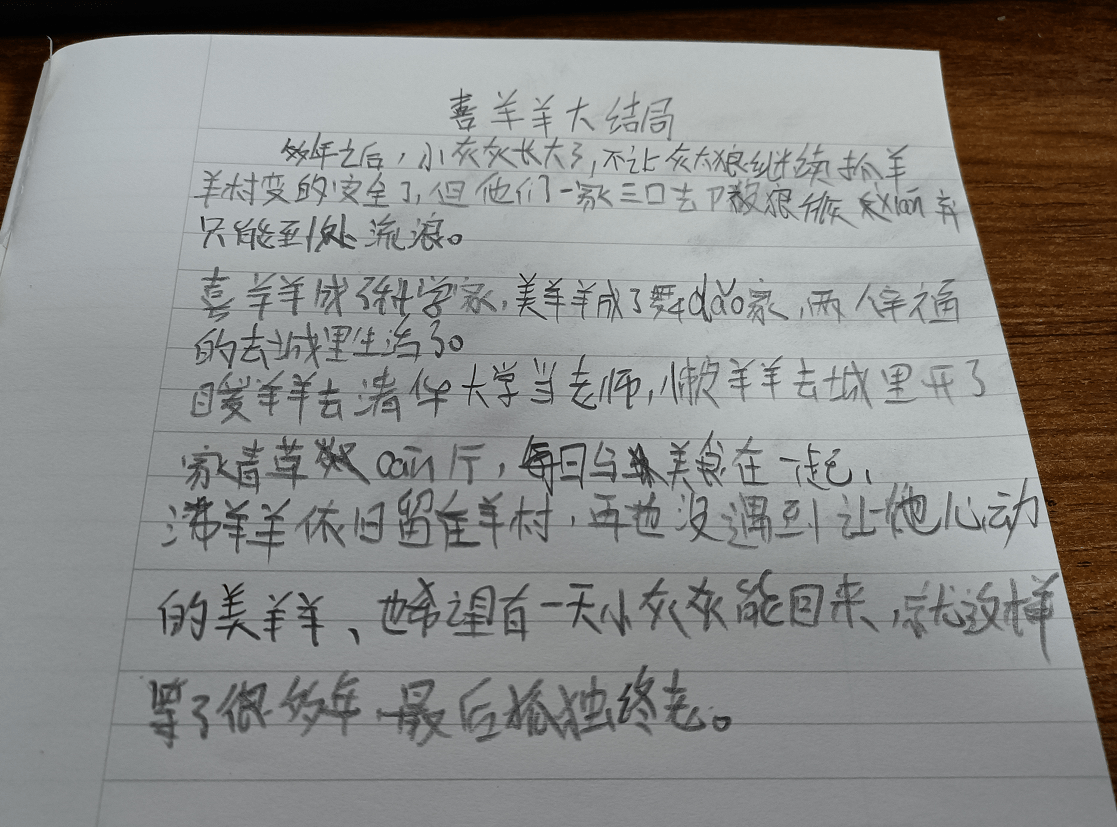 喜羊羊大结局
多年之后，小灰灰长大了，不让灰太狼继续抓羊
羊村变的安全了，但他们一家三口去被狼族 xián弃
只能到处流浪。
喜羊羊成了科学家，美羊羊成了舞dǎo家，两人幸福
的去城里生活了。
暖羊羊去清华大学当老师，懒羊羊去城里开了
家青草 cān厅，每日与美食在一起，
沸羊羊依旧留在羊村，再也没遇到让他心动
的美羊羊、也希望有一天小灰灰能回来，就这样
等了很多年，最后孤独终老。